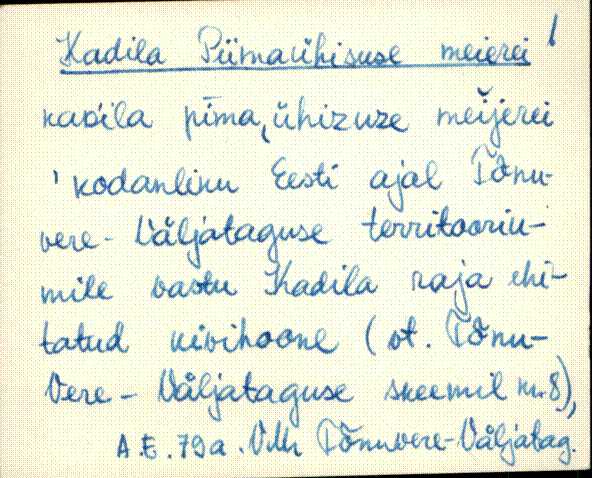 Kadila Piimaühisuse meierei !
kad'ila pīma,ühizuze meĭjerei
' kodanlinu Eesti ajal Tõnu-
vere-Väljataguse territooriu-
mile vastu Kadila raja ehi-
tatud kivihoone (vt. Tõnu-
Vere-Väljataguse skeemil nr. 8),
A.E. 79a. V.Mr Tõnuvere-Väljatag.